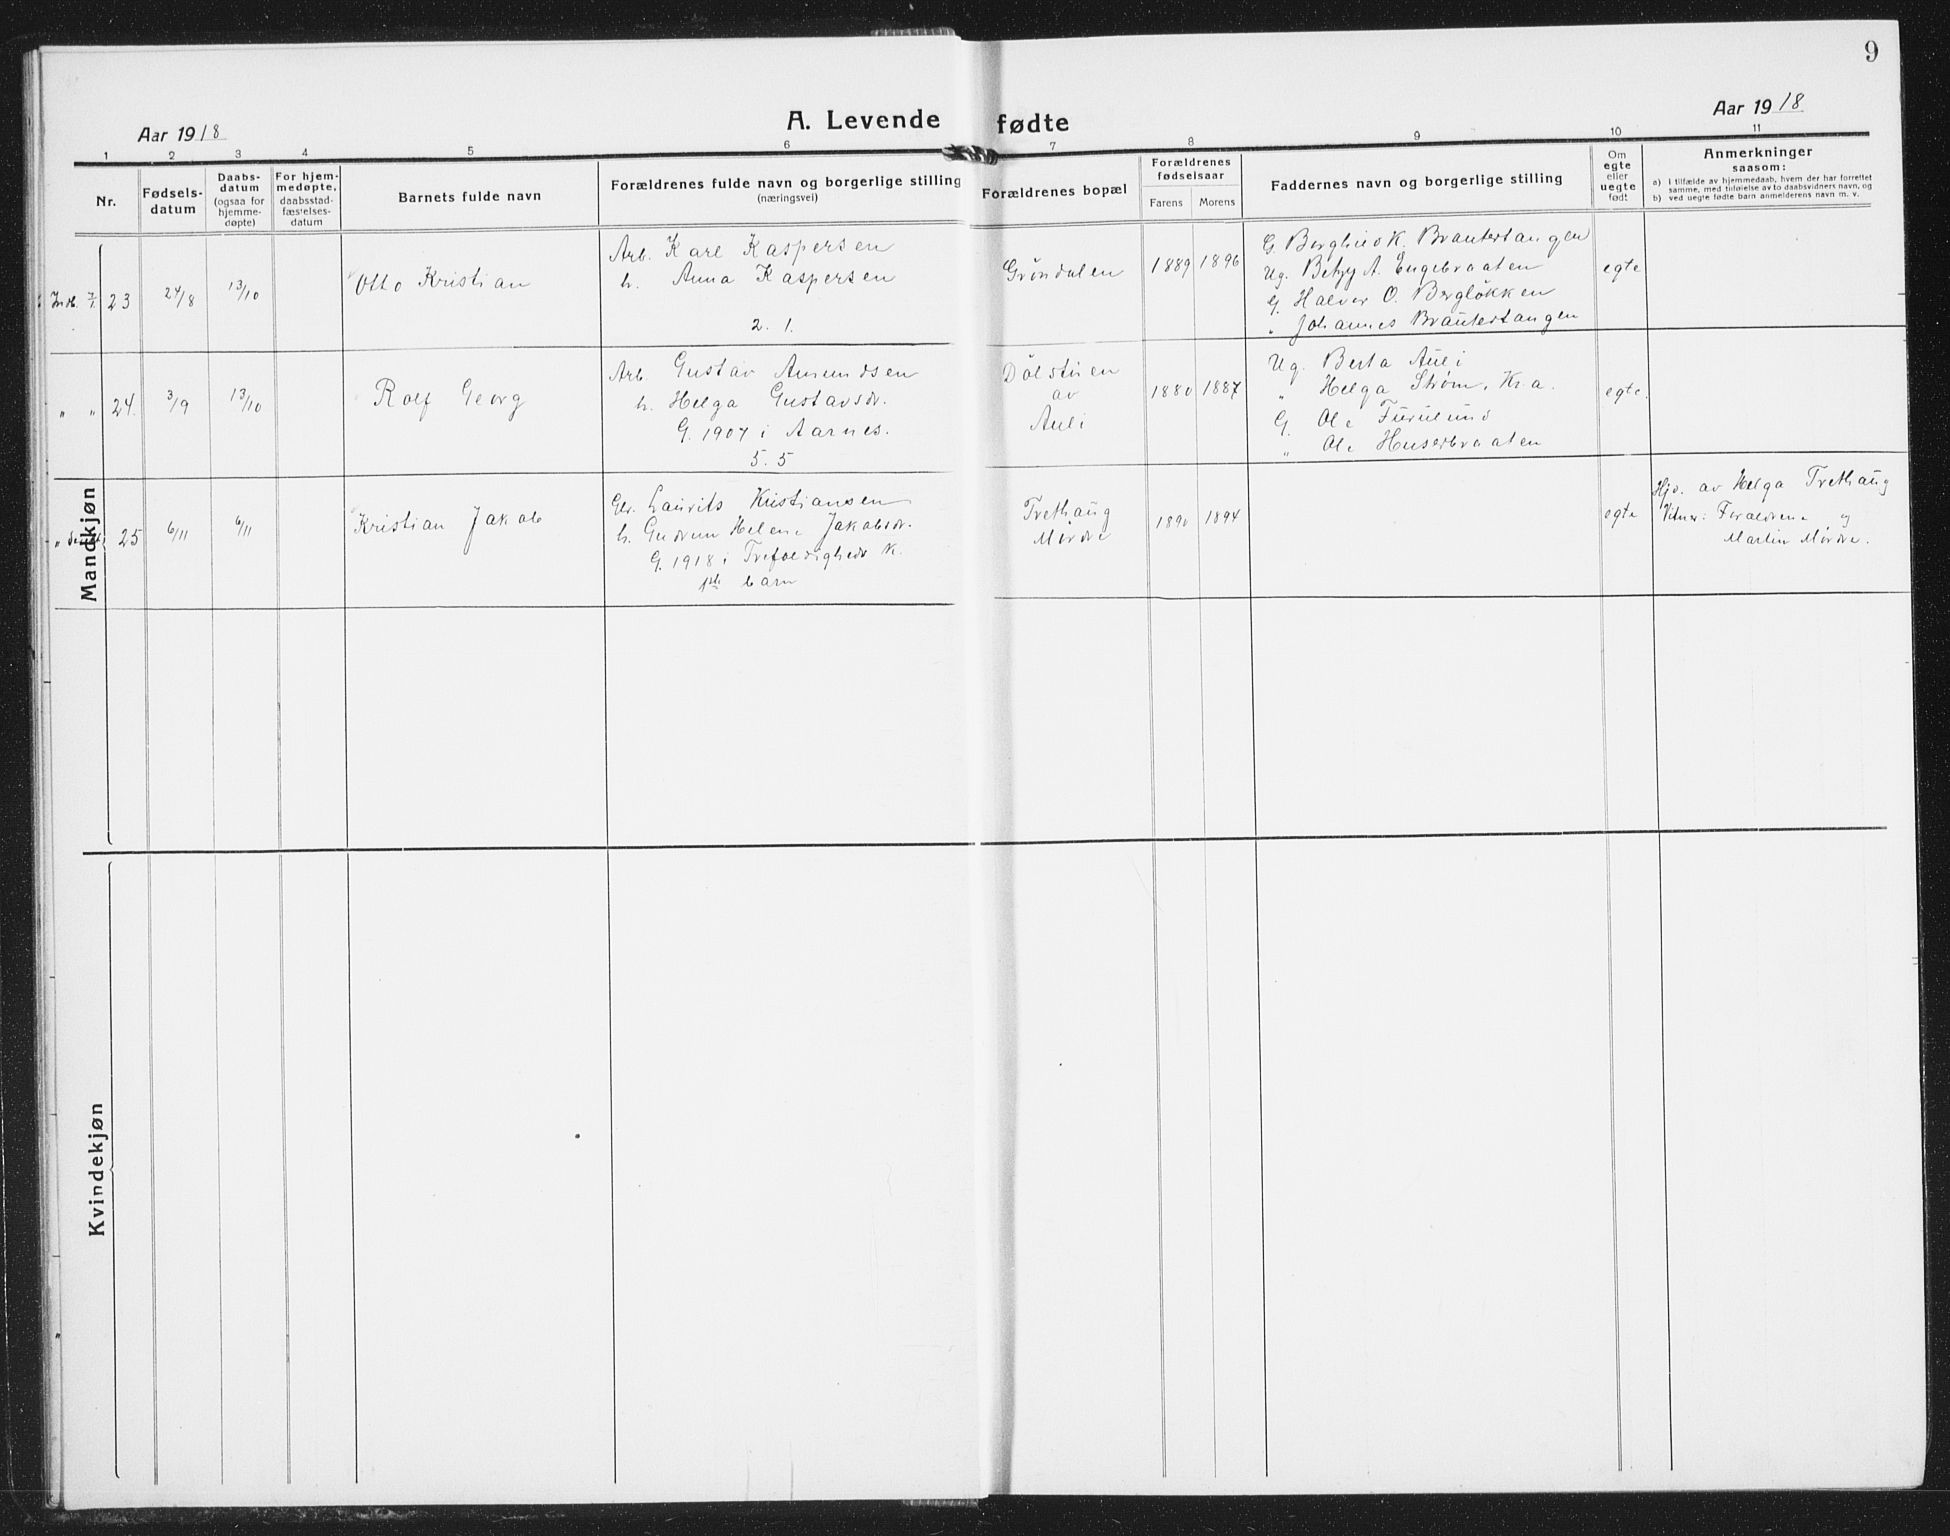 9
Aar 1918
A. Levende fødte
Aar 1918
1 2 3 4 5 6 7 8 9 10 11
Nr.
Fødsels-
datum
Daabs-
datum
(ogsaa for
hjemme-
døpte)
For hjem-
medøpte,
daabsstad-
fæstelses-
datum
Barnets fulde navn
Forældrenes fulde navn og borgerlige stilling
(næringsvei)
Forældrenes bopæl
Forældrenes
fødselsaar
Farens Morens
Faddernes navn og borgerlige stilling
Om
egte
eller
uegte
født
Anmerkninger
saasom:
a) i tilfælde av hjemmedaab, hvem der har forrettet
samme, med tilføielse av to daabsvidners navn, og
b) ved uegte fødte barn anmelderens navn m. v.
Mandkjøn
23
24/8
13/10
Otto Kristian
Arb. Karl Kaspersen
h. Anna Kaspersen
2. 1.
Gröndalen
1889 1896
G. Borghild K. Brautestangen
Ug. Betzy A. Engebraaten
G. Halvor O. Berglökken
" Johannes Brautestangen
egte
" " 24.
3/9
13/10
Rolf Georg
Arb. Gustav Amundsen
h. Helga Gustavsdr.
G. 1907 i Aarnes.
5. 5
Dölstuen
av
Auli
1880 1887
Ug. Berta Auli
" Helga Strøm, Kr.a.
G. Ole Furulund
" Ole Huserbraaten
egte.
25
6/11
6/11
Kristian Jakob
Laurits Kristiansen
h. Gudrun Helene Jakobsdr.
G. 1918 i Trefoldigheds K.
1ste barn
Trethaug
Mördre
1890 1894
egte
Hjd. av Helga Trethaug
Vitner: Foraldrene og
Martin Mördre.
Kvindekjøn